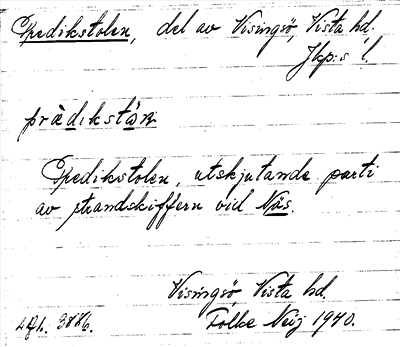 Predikstolen, del av Visingsö, Vista hd.
Jkp:s l.
prädikstån
Predikstolen, utskjutande parti
av strandskiffern vid Näs.
Visingsö, Vista hd.
Folke Neij 1940.
3886.